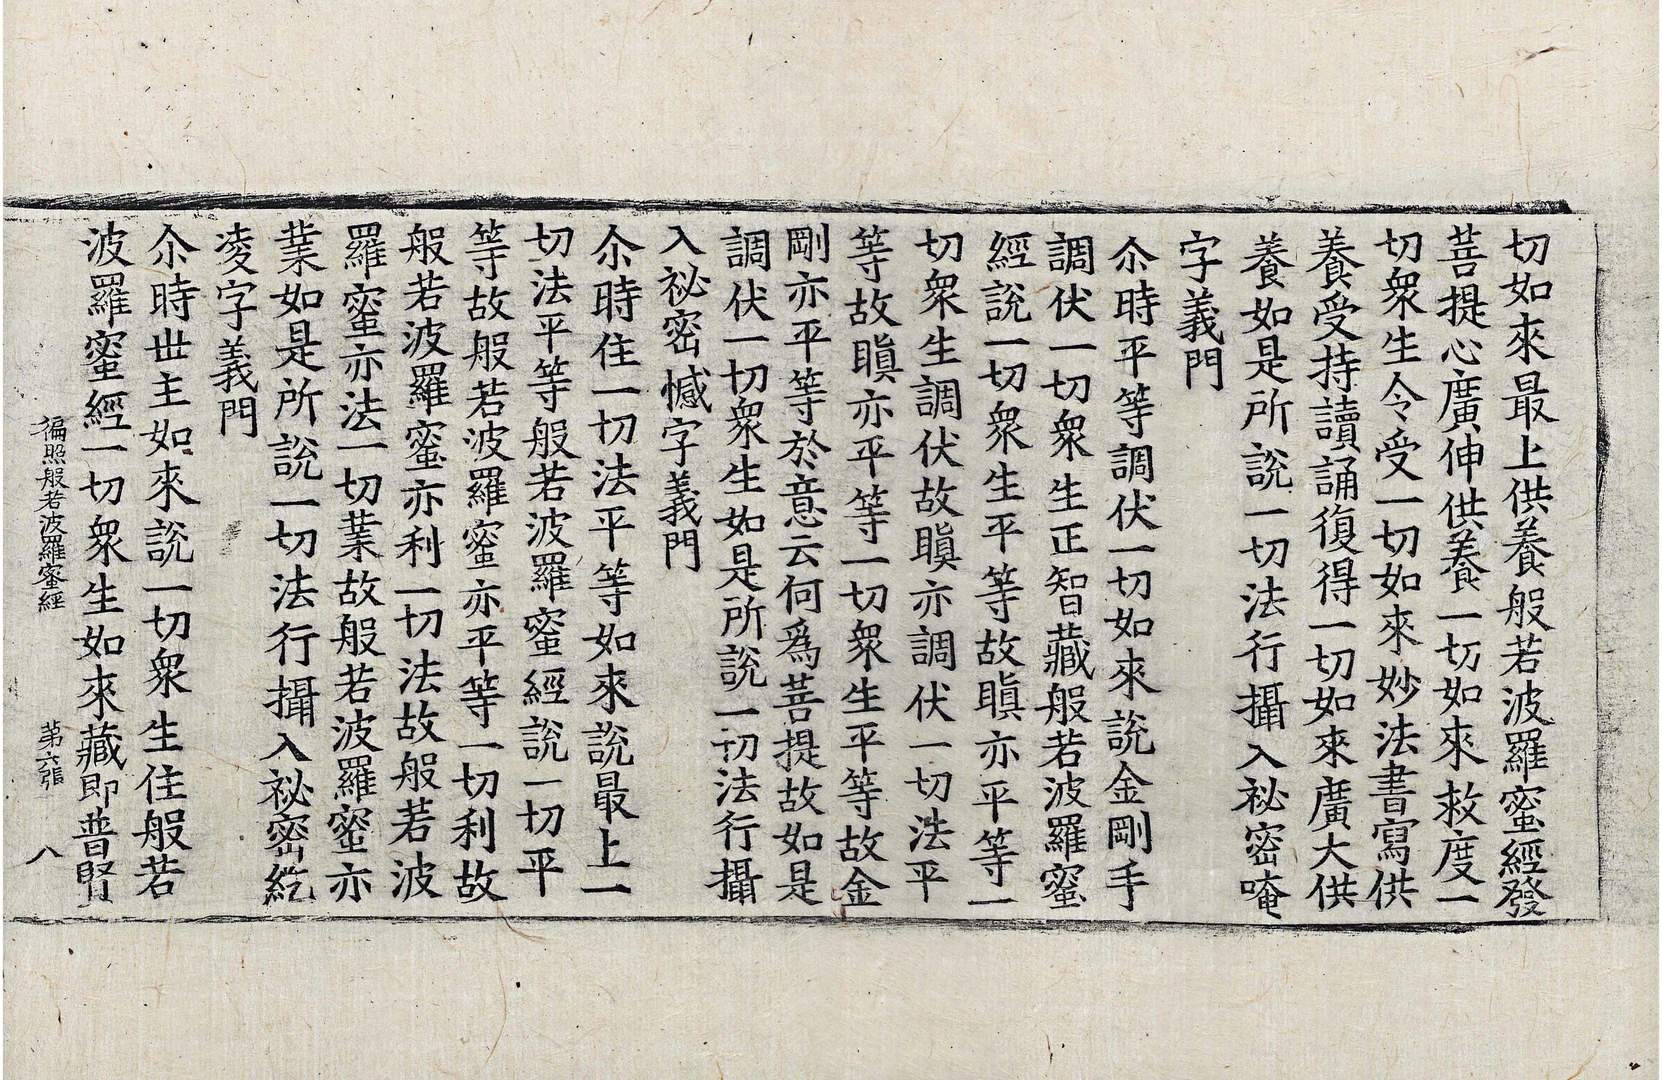 切如來最上供養般若波羅蜜經發
菩提心廣伸供養一切如來救度一
切衆生令受一切如來妙法書寫供
養受持讀誦復得一切如來廣大供
養如是所說一切法行攝入祕密唵
字義門
尒時平等調伏一切如來說金剛手
調伏一切衆生正智藏般若波羅蜜
經說一切衆生平等故瞋亦平等一
切衆生調伏故瞋亦調伏一切法平
等故瞋亦平等一切衆生平等故金
剛亦平等於意云何爲菩提故如是
調伏一切衆生如是所說一切法行攝
入祕密憾字義門
尒時住一切法平等如來說最上一
切法平等般若波羅蜜經說一切平
等故般若波羅蜜亦平等一切利故
般若波羅蜜亦利一切法故般若波
羅蜜亦法一切業故般若波羅蜜亦
業如是所說一切法行攝入祕密紇
凌字義門
尒時世主如來說一切衆生住般若
波羅蜜經一切衆生如來藏即普賢
徧照般若波羅蜜經 第六張 八